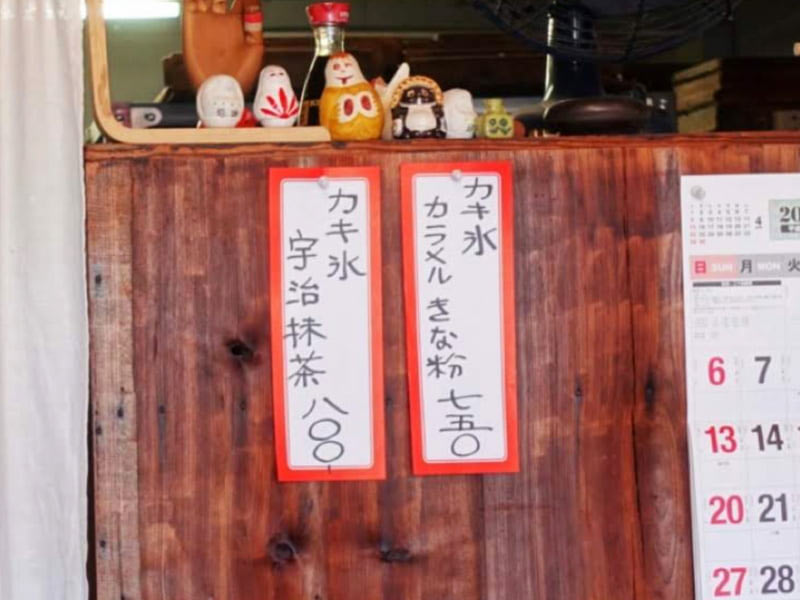 カキ氷
カラメルきな粉 七五〇
カキ氷
宇治抹茶 八〇〇
4
20
日 SUN 月 MON 火
6 7
13 14
20 21
27 28